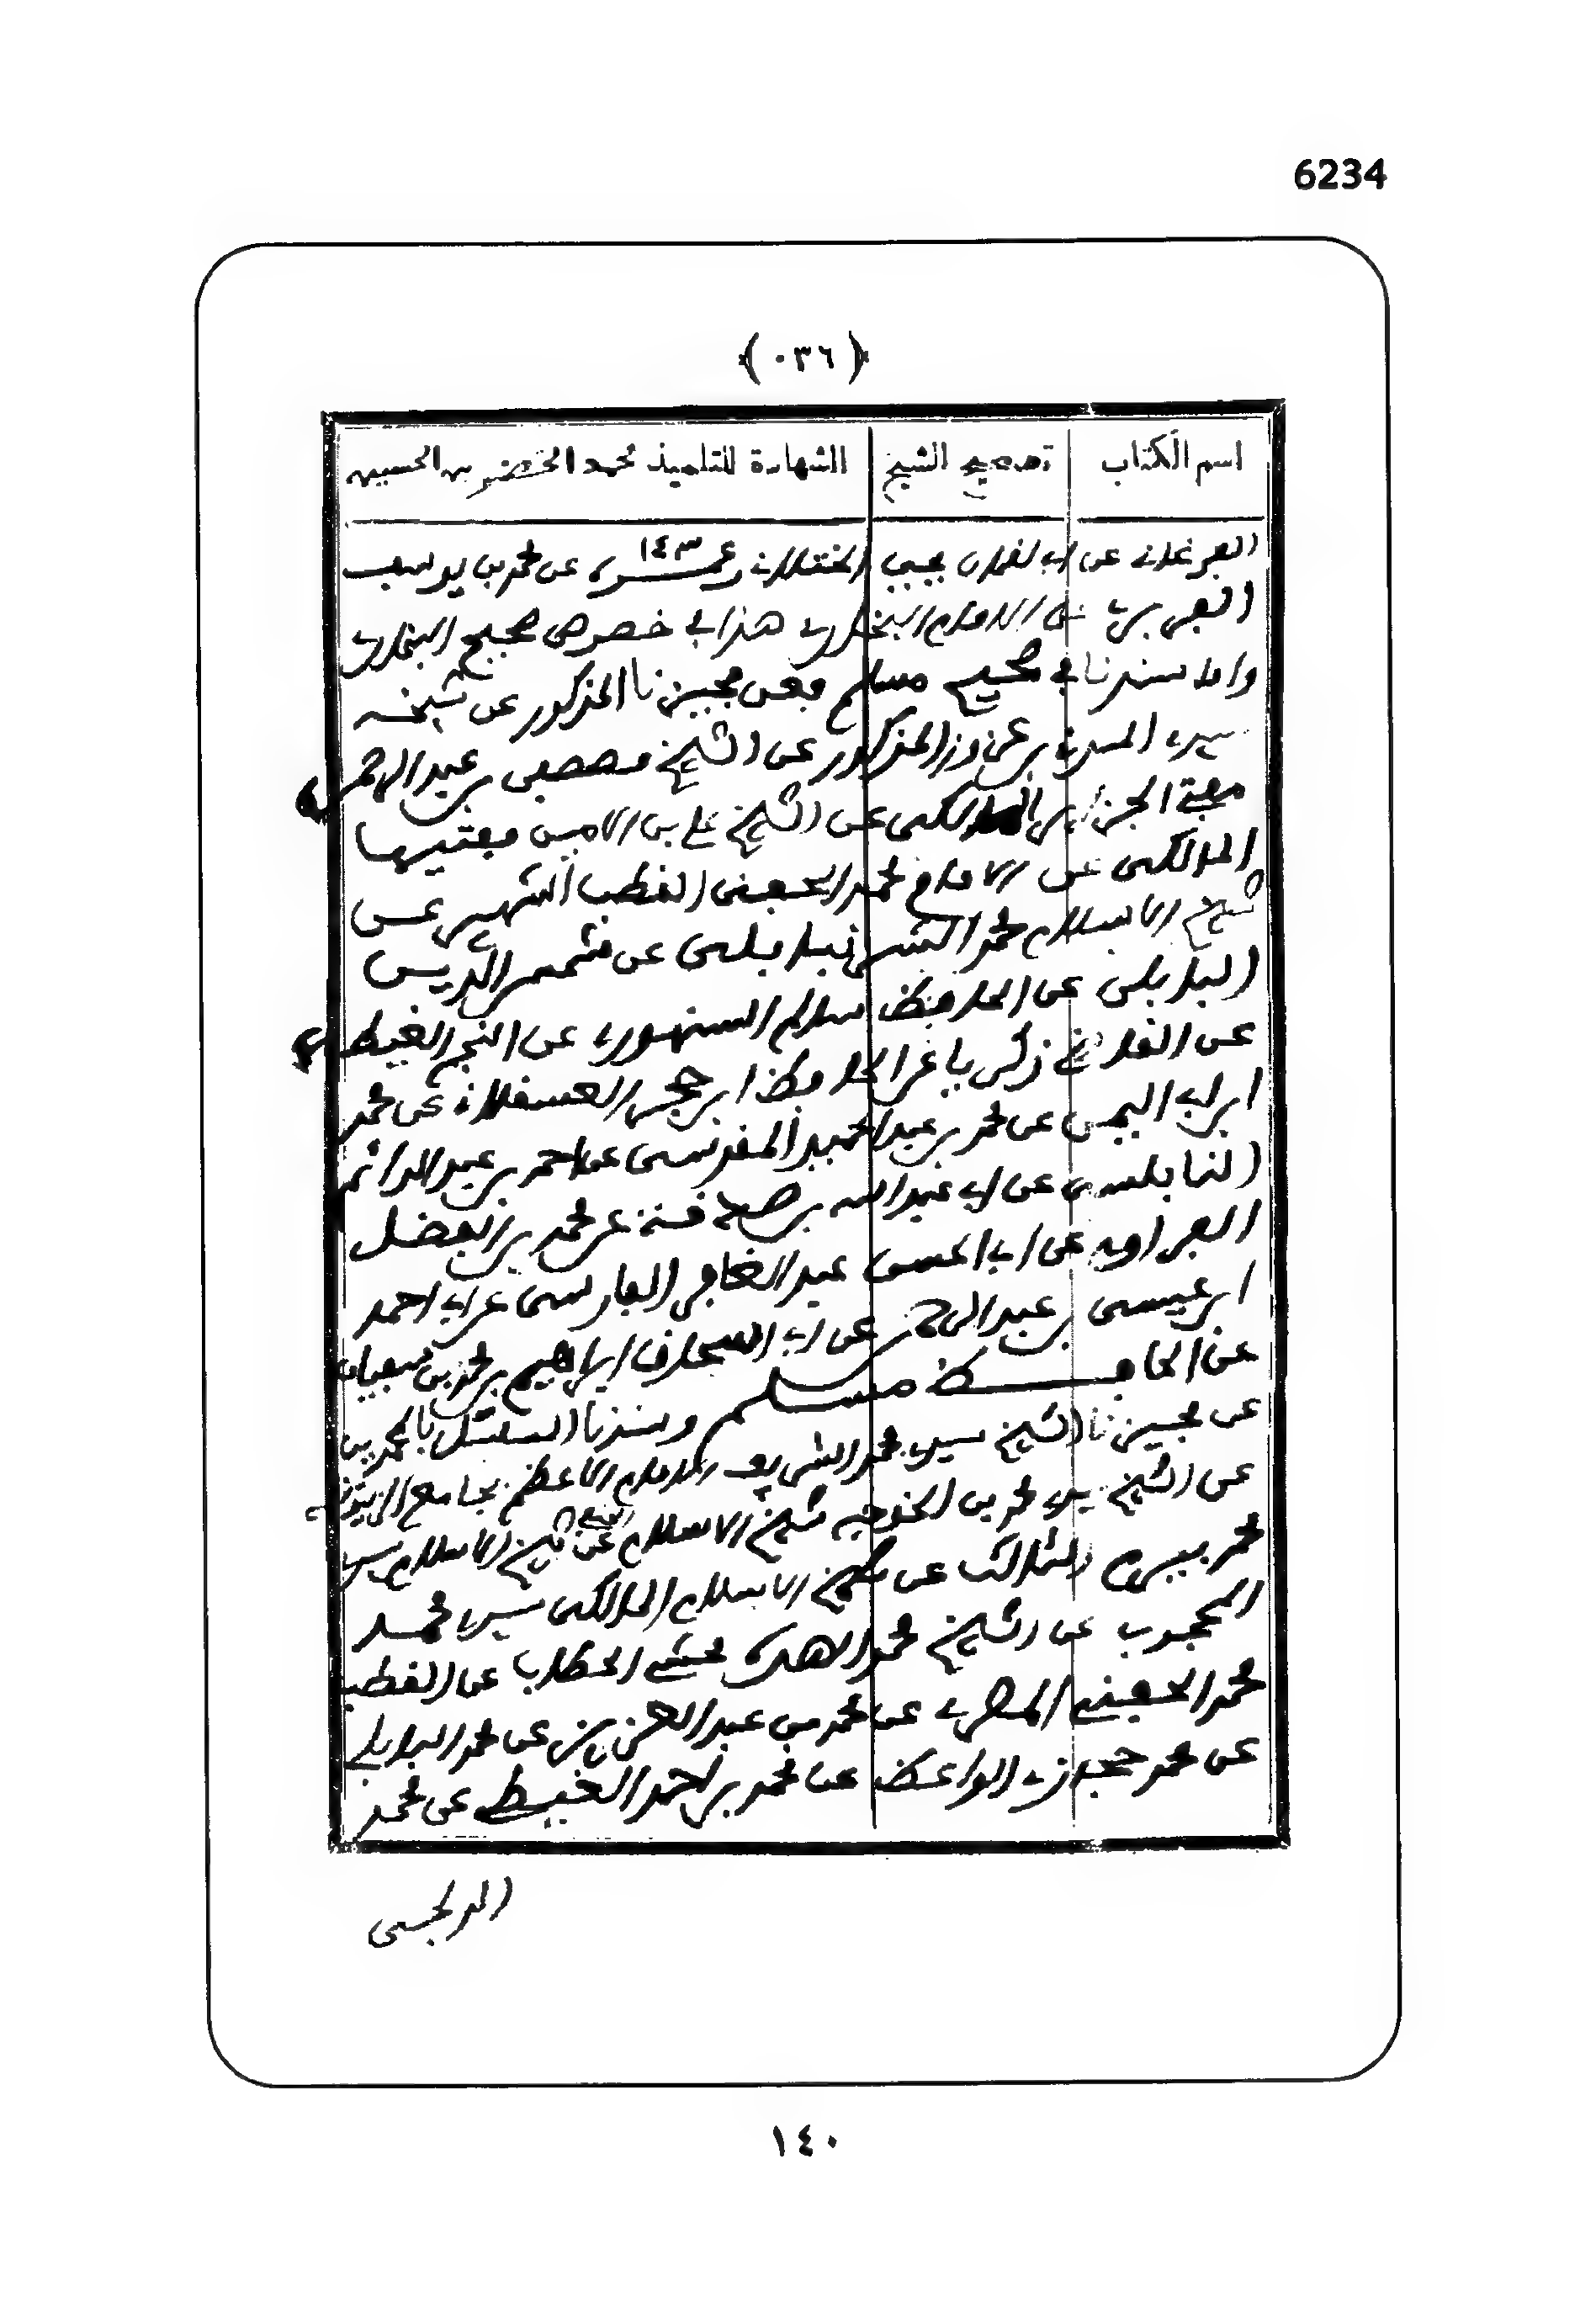 6234
﴿٠٣٦﴾
اسم الكتاب تصحيح الشيخ الشهادة للتلميذ محمد الخضر بن الحسين
الفرغاني عن ابي لقمان يحيى الختلاني وعمره ١٤٣ عن محمد بن يوسف
الفربري عن الامام البخاري هذا في خصوص صحيح البخاري
واما سندنا في صحيح مسلم فعن مجيزنا المذكور عن شيخه
سيدي المدني بن عزوز المذكور عن الشيخ مصطفى بن عبد الرحمن
مفتي الجزاير المالكي عن الشيخ علي بن الامين مفتيها
المالكي عن الامام محمد الحفني القطب الشهير عن
شيخ الاسلام محمد الشرنبابلي عن شمس الدين
البابلي عن الحافظ سالم السنهوري عن النجم الغيطي
عن القاضي زكرياء عن الحافظ ابن حجر العسقلاني عن محمد
ابن ابي اليمن عن محمد بن عبد الحميد المقدسي عن احمد بن عبد الدائم
النابلسي عن ابي عبد الله بن صدقة عن محمد بن الفضل
الفراوي عن ابي الحسن عبد الغافر الفارسي عن ابي احمد
ابن عيسى بن عبد الرحمن عن ابي اسحاق ابراهيم بن محمد بن سفيان
عن الحافظ مسلم وسندنا المسلسل بالمحمدين
عن مجيزنا الشيخ سيدي محمد الشريف الامام الاعظم بجامع الزيتونة
عن الشيخ سيدي محمد بن الخوجه شيخ الاسلام عن شيخ الاسلام سيدي
محمد بيرم الثالث عن شيخ الاسلام المالكي سيدي محمد
المحجوب عن الشيخ محمد الهدة محشي الحطاب عن القطب
محمد الحفني المصري عن محمد بن عبد العزيز عن محمد البابلي
عن محمد حجازي الواعظ عن محمد بن احمد الغيطي عن محمد
الدلجي
١٤٠